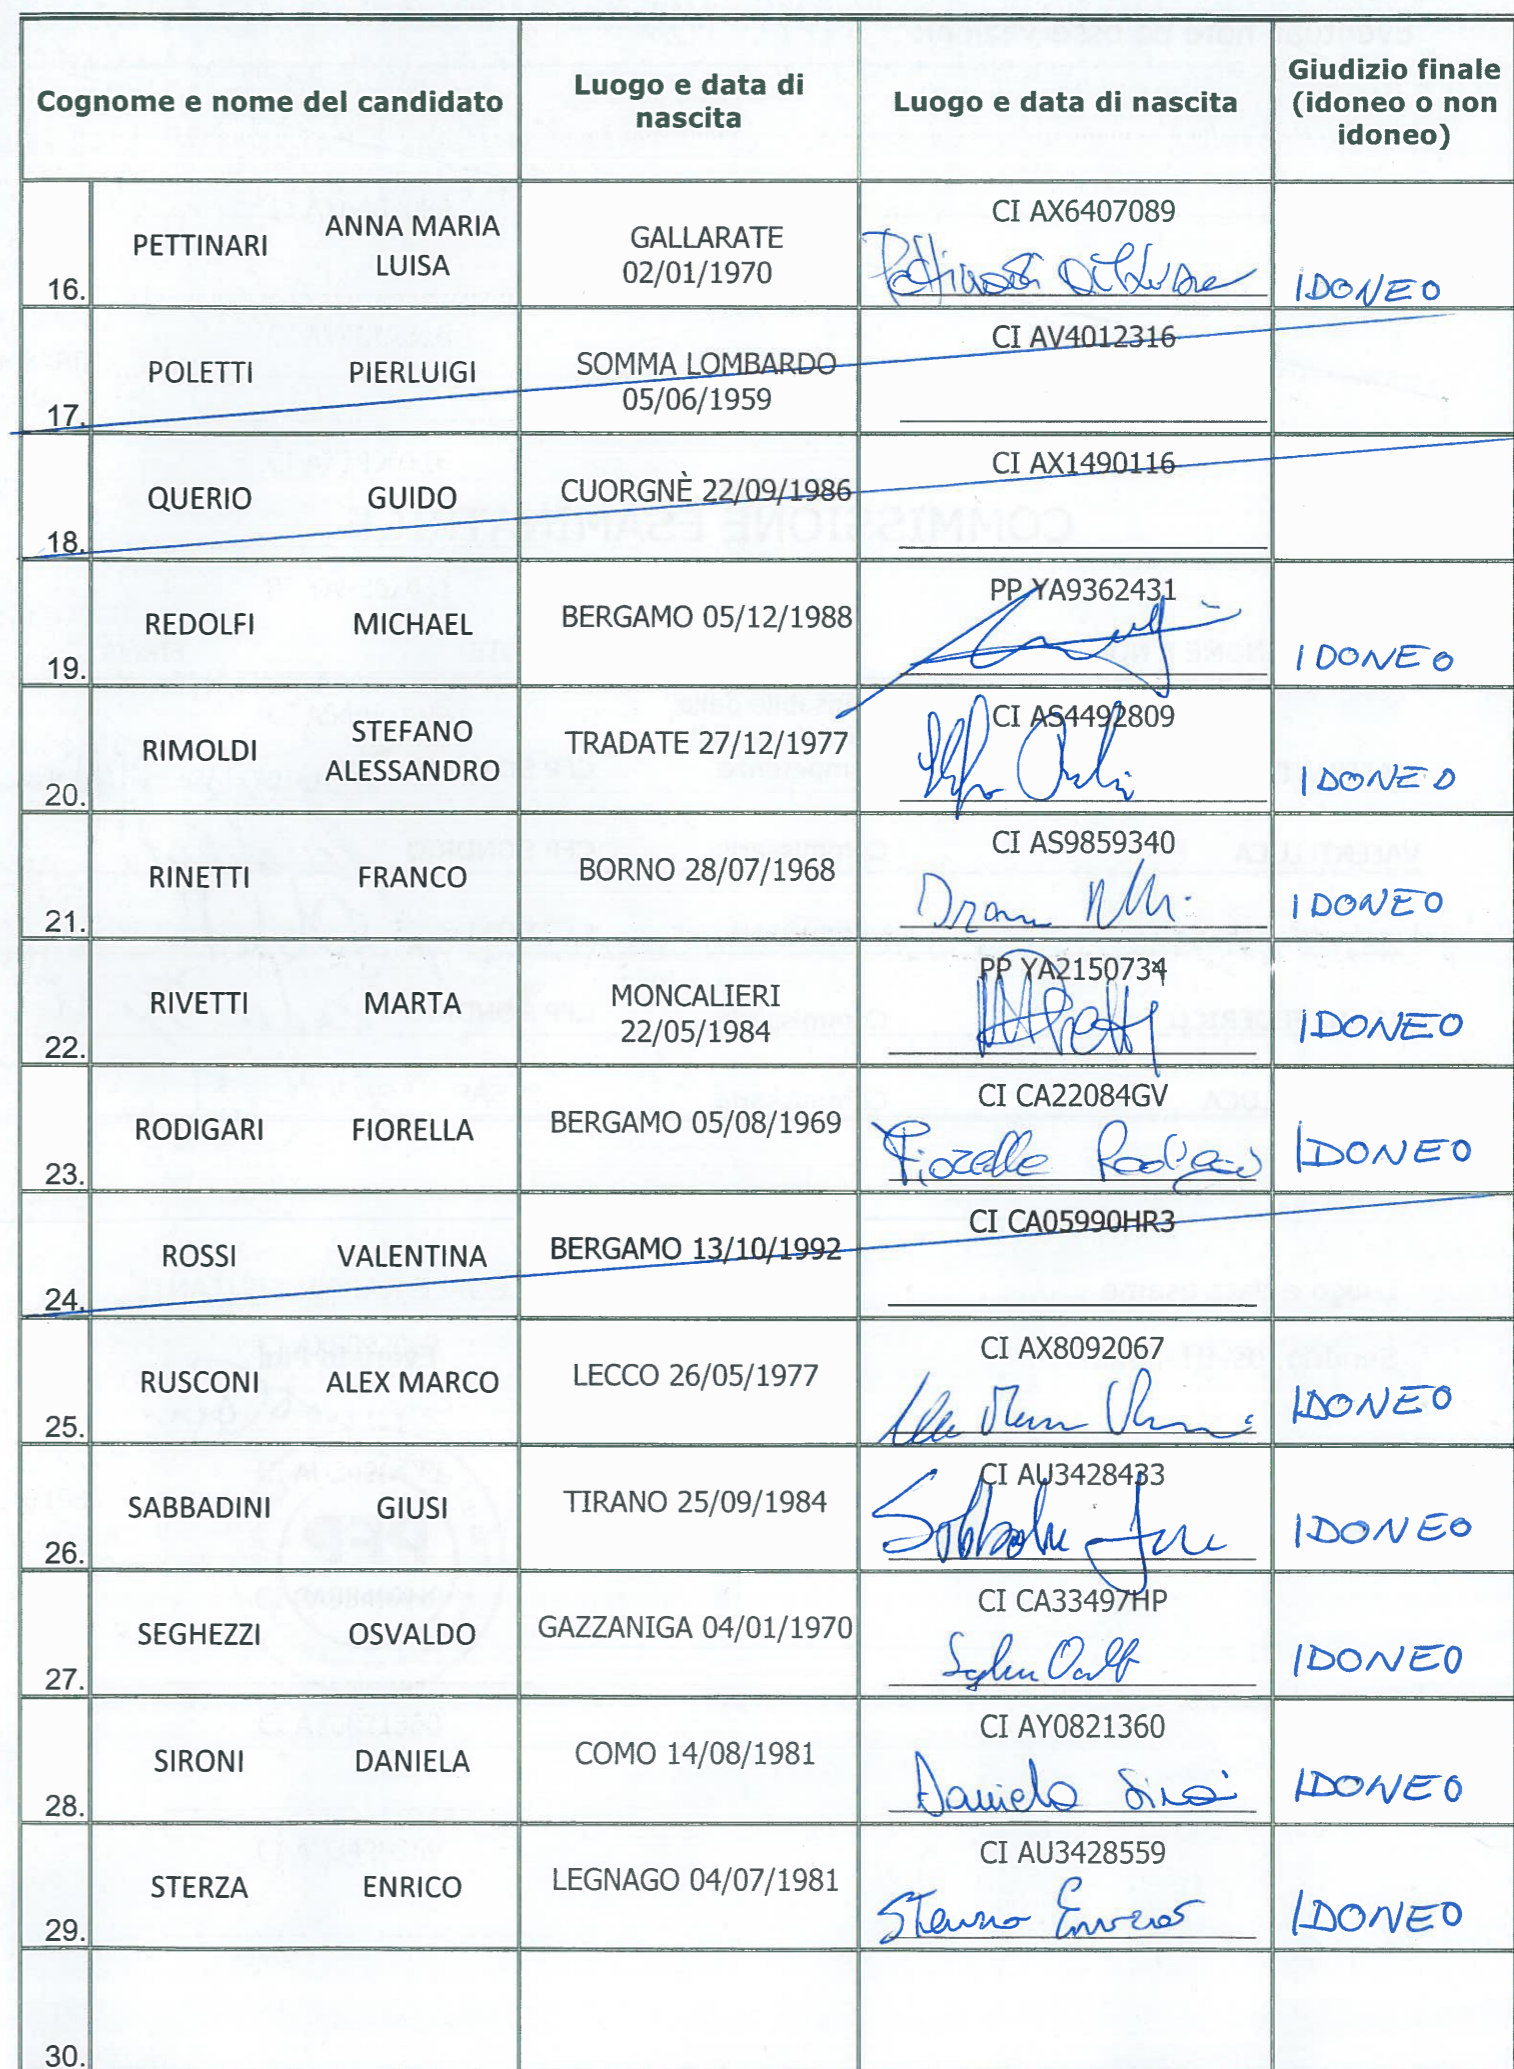 Cognome e nome del candidato
Luogo e data di
nascita
Luogo e data di nascita
Giudizio finale
(idoneo o non
idoneo)
16.
PETTINARI
ANNA MARIA
LUISA
GALLARATE
02/01/1970
CI AX6407089
IDONEO
17.
POLETTI
PIERLUIGI
SOMMA LOMBARDO
05/06/1959
CI AV4012316
18.
QUERIO
GUIDO
CUORGNÈ 22/09/1986
CI AX1490116
19.
REDOLFI
MICHAEL
BERGAMO 05/12/1988
PP YA9362431
IDONEO
20.
RIMOLDI
STEFANO
ALESSANDRO
TRADATE 27/12/1977
CI AS4492809
IDONEO
21.
RINETTI
FRANCO
BORNO 28/07/1968
CI AS9859340
IDONEO
22.
RIVETTI
MARTA
MONCALIERI
22/05/1984
PP YA2150734
IDONEO
23.
RODIGARI
FIORELLA
BERGAMO 05/08/1969
CI CA22084GV
Fiorella Rodigari
IDONEO
24.
ROSSI
VALENTINA
BERGAMO 13/10/1992
CI CA05990HR3
25.
RUSCONI
ALEX MARCO
LECCO 26/05/1977
CI AX8092067
IDONEO
26.
SABBADINI
GIUSI
TIRANO 25/09/1984
CI AU3428433
IDONEO
27.
SEGHEZZI
OSVALDO
GAZZANIGA 04/01/1970
CI CA33497HP
IDONEO
28.
SIRONI
DANIELA
COMO 14/08/1981
CI AY0821360
Daniela Sironi
IDONEO
29.
STERZA
ENRICO
LEGNAGO 04/07/1981
CI AU3428559
Sterza Enrico
IDONEO
30.